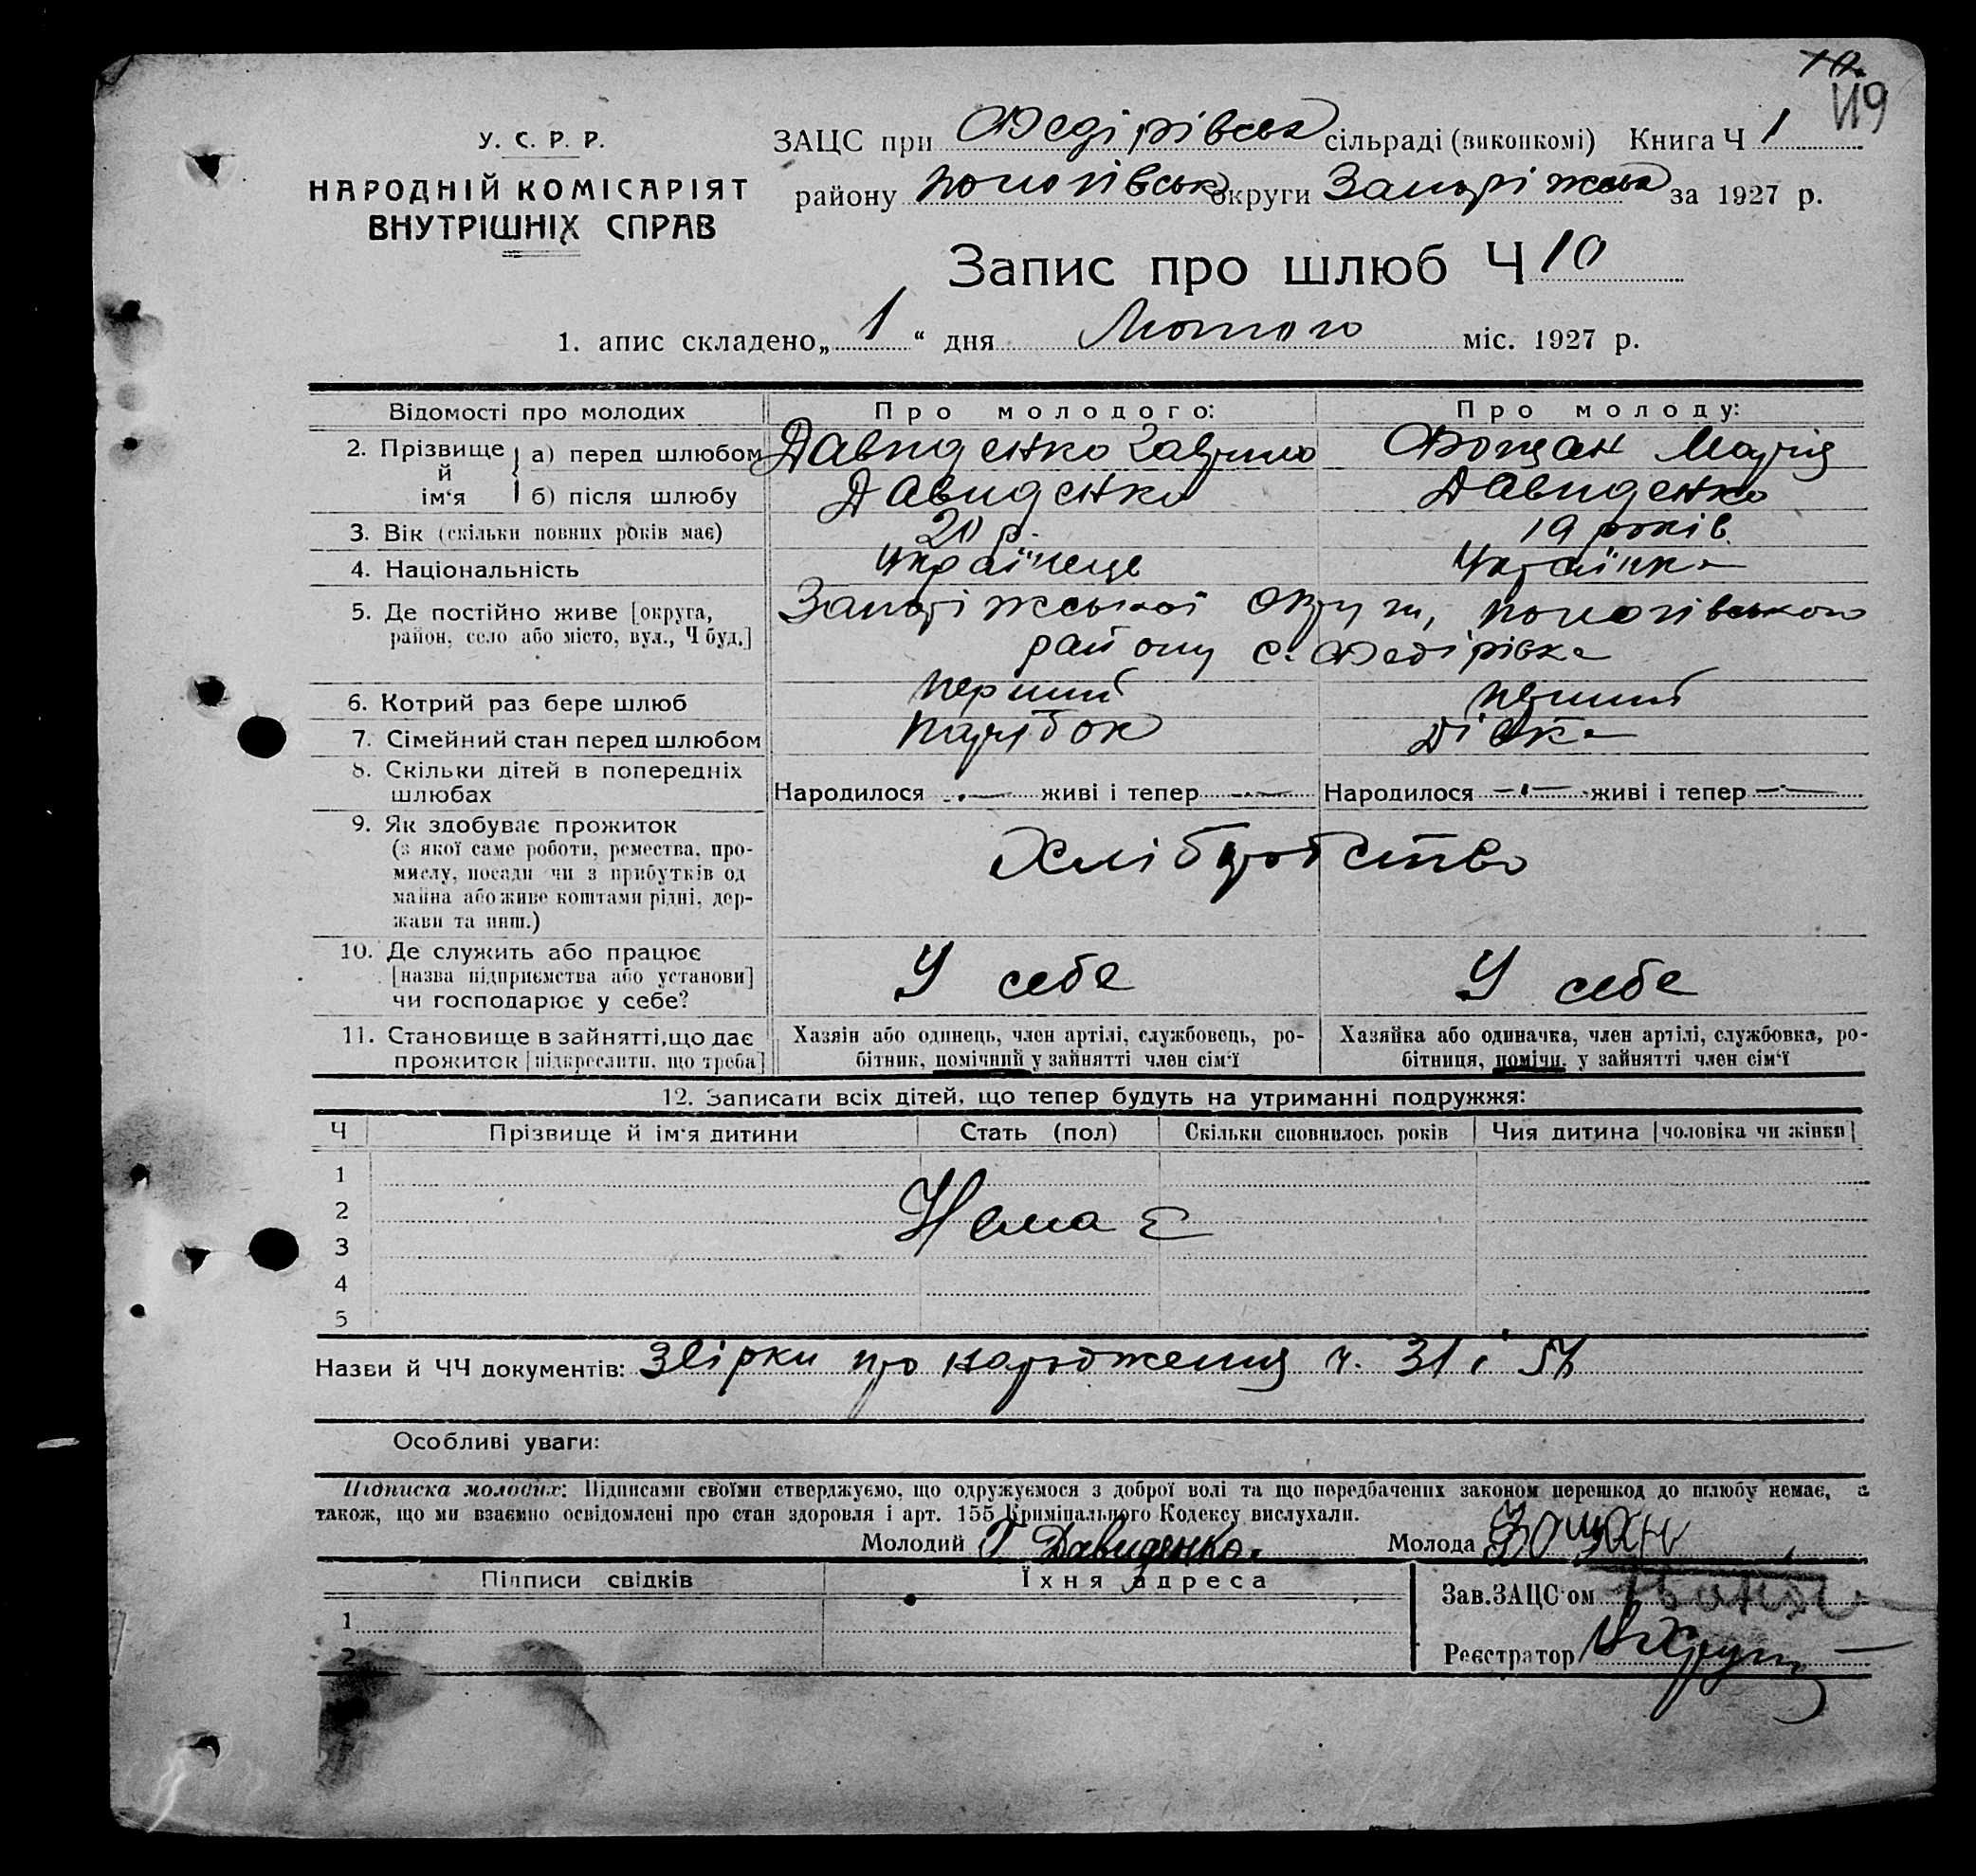 У. С. Р. Р.
НАРОДНІЙ КОМІСАРІЯТ
ВНУТРІШНІХ СПРАВ
119
ЗАЦС при Федірівській сільраді (виконкомі) Книга Ч 1
району Пологівськ округи Запоріжська за 1927 р.
Запис про шлюб Ч 10
1. апис складено „ 1 “ дня Лютого міс. 1927 р.
Відомості про молодих Про молодого: Про молоду:
2. Прізвище й ім‘я а) перед шлюбом Давиденко Гаврило Фощан Марія
б) після шлюбу Давиденко Давиденко
3. Вік (скільки повних років має) 20 р. 19 років
4. Національність Українець Українка
5. Де постійно живе [округа, район, село або місто, вул., Ч буд.] Запоріжської округи, Пологівського
району с. Федірівка
6. Котрий раз бере шлюб Перший Перший
7. Сімейний стан перед шлюбом Парубок Дівка
8. Скільки дітей в попередніх шлюбах Народилося — живі і тепер — Народилося — живі і тепер —
9. Як здобуває прожиток
(з якої саме роботи, ремества, про-
мислу, посади чи з прибутків од
майна або живе коштами рідні, дер-
жави та инш.)
Хліборобство
10. Де служить або працює
[назва підприємства або установи]
чи господарює у себе?
У себе У себе
11. Становище в зайнятті, що дає
прожиток [підкреслити, що треба]
Хазяїн або одинець, член артілі, службовець, ро-
бітник, помічний у зайнятті член сім‘ї
Хазяйка або одиначка, член артілі, службовка, ро-
бітниця, помічн. у зайнятті член сім‘ї
12. Записати всіх дітей, що тепер будуть на утриманні подружжя:
Ч Прізвище й ім‘я дитини Стать (пол) Скільки сповнилось років Чия дитина [чоловіка чи жінки]
1
2 Немає
3
4
5
Назви й ЧЧ документів: Звірки про народження ч. 31 і 57
Особливі уваги:
Підписка молодих: Підписами своїми стверджуємо, що одружуємося з доброї волі та що передбачених законом перешкод до шлюбу немає, а
також, що ми взаємно освідомлені про стан здоровля і арт. 155 Кримінального Кодексу вислухали.
Молодий Г Давиденко. Молода Фощан
Підписи свідків Їхня адреса
Зав. ЗАЦС‘ом
1
Реєстратор
2